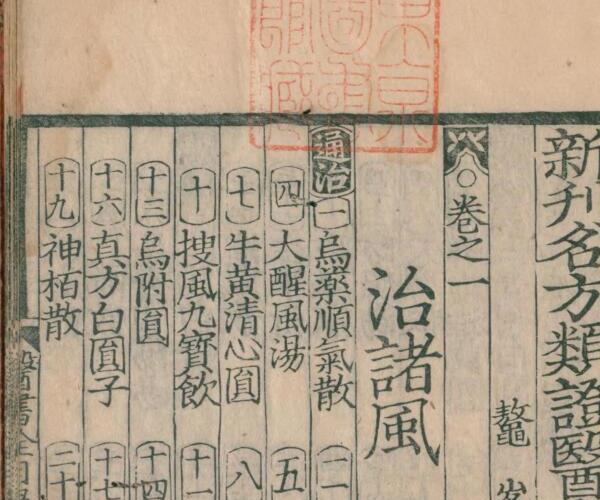 新刊名方類證醫
鼇
○卷之一
治諸風
通治 一 烏藥順氣散 二
四 大醒風湯 五
七 牛黃清心圓 八
十 搜風九寶飲 十一
十三 烏附圓 十四
十六 真方白圓子 十七
十九 神栢散 二十
醫書